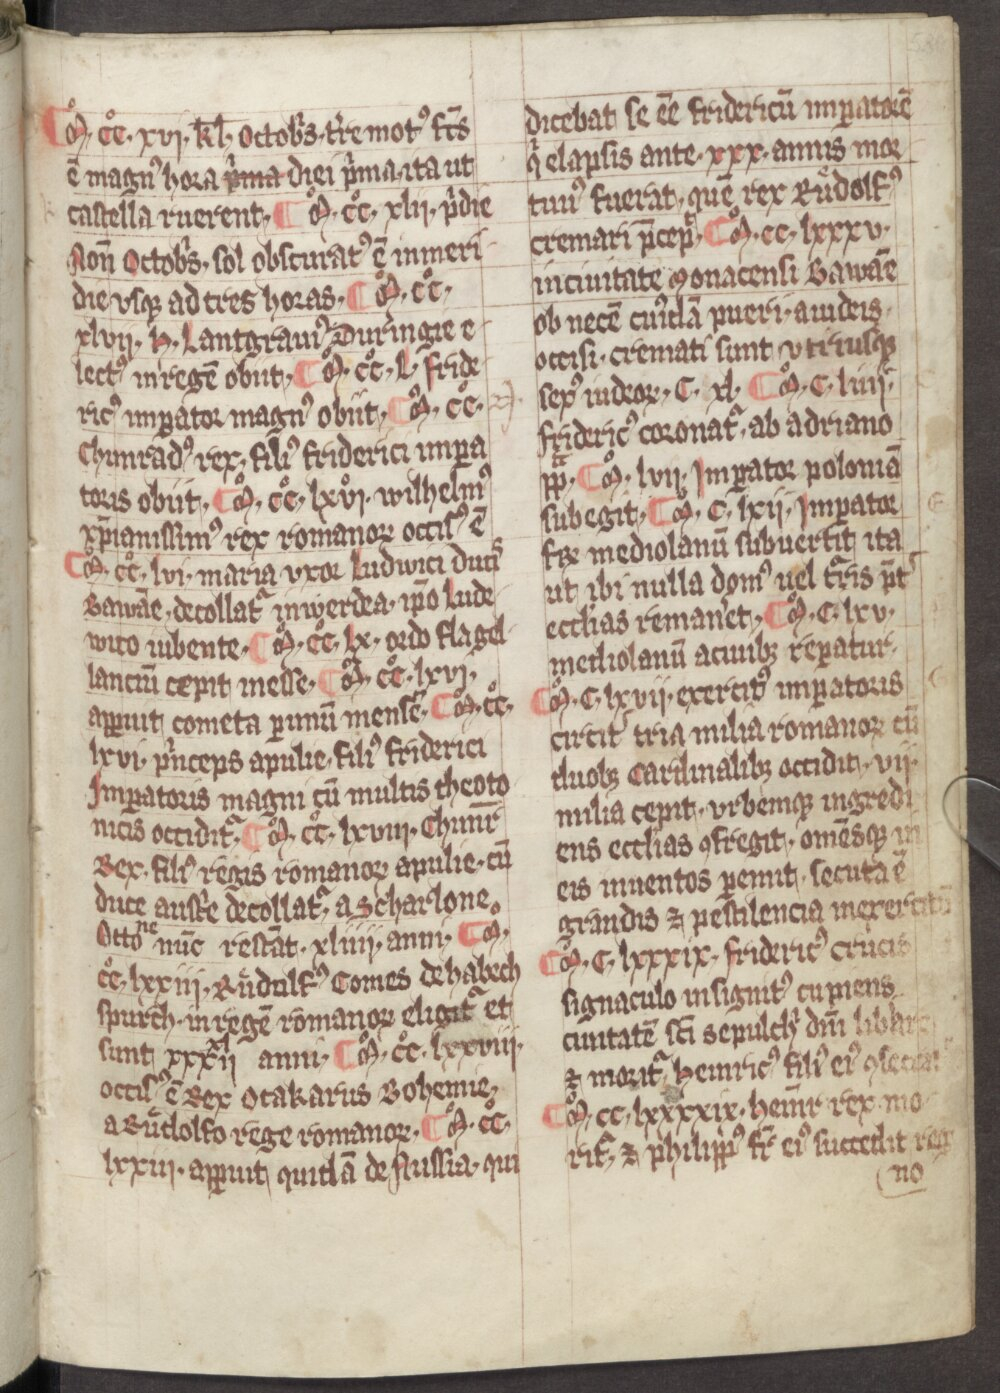 M° . cc° . xvi . kl̄ . Octobꝛ̄s . t̄re mot᷒ fc̄s
ē magn᷒ hora pͥma diei pͥma . ita ut
castella ruerent . M° . cc° . xlii . pͥdie
Non̄ Octobꝛ̄s . sol obscurat᷒ ē in meri
die vsqꝫ ad tres horas . M° . cc° .
xlvii . H . Lantgraui᷒ Duringie e
lect᷒ in regē obiit . M° . cc° . L . fride
ric᷒ imꝑator magn᷒ obiit . M° . cc° .
Chunrad᷒ rex . fili᷒ friderici impa
toris obiit . M° . cc° . lxvi . wilhelm᷒
xp̄ianissim᷒ rex romanoꝝ occis᷒ ē
M° . cc° . lvi . maria vxor Ludwici ducis
Bawaīe . decollatᷣ in werdea . ip̄o Lude
wico iubente . M° . cc° . lx . ordo flagel
lanciū cepit in esse . M° . cc° . lxvi .
apꝑuit cometa ꝑ unū mensē . M° . cc° .
lxvi . pͥnceps apulie . fili᷒ friderici
Imꝑatoris magni cū multis theoto
nicis occiditᷣ . M° . cc° . lxviii . Chunr̄
Rex . fili᷒ regis romanoꝝ apulie . cū
duce aust̄e decollatᷣ . a Scharlone .
Ottone nūc restāt . xliiii . anni . M° .
cc° . lxxiii . Růdolf᷒ Comes de habech
spurch . in regē romanoꝝ eligitᷣ et
sunt xxxii anni . M° . cc° . lxxviii .
occis᷒ ē Rex Otakarus Bohemie .
a Růdolfo rege romanoꝝ . M° . cc° .
lxxiii . apꝑuit quidā de Nussia . qui
dicebat se eē fridericū imꝑatorē
qͥ elapsis ante . xxx . annis mor
tuu᷒ fuerat . quē rex Růdolf᷒
cremari p̄cepͥ . M° . cc . lxxxv .
in ciuitate Monacensi Bawaīe
ob necē cui᷒dā pueri . a iudeis .
occisi . cremati sunt vtriusqꝫ
sex᷒ iudeoꝝ . C . xl . M° . C . liiii .
frideric᷒ coronatᷣ . ab adriano
pp̄ . M° . lvii . Imꝑator poloniā
subegit . M° . C . lxii . Imꝑator
mediolanū subuertit ita
ut ibi nulla dom᷒ uel t̄ris p̄t
ecclias remanet . M° . C . lxv .
mediolanū a ciuibꝫ reꝑatur .
M° . C . lxvii . exercit᷒ imꝑatoris
circit᷒ tria milia romanoꝝ cū
duobꝫ Cardinalibꝫ occidit . vii .
milia cepit . vrbemqꝫ ingredi
ens ecclias ꝯfregit . omēsqꝫ in
eis inuentos ꝑemit . secuta ē
grandis ⁊ pestilencia in exercitū
M° . C . lxxxix . frideric᷒ crucis
signaculo insignit᷒ cupiens
ciuitatē sc̄i sepulchͥ dn̄i libar
⁊ moritᷣ . Heinric᷒ fili᷒ ei᷒
M° . cc . lxxxxix . Heinr̄ rex mo
ritᷣ . ⁊ philipp᷒ fr̄ ei᷒ succedit reg
no